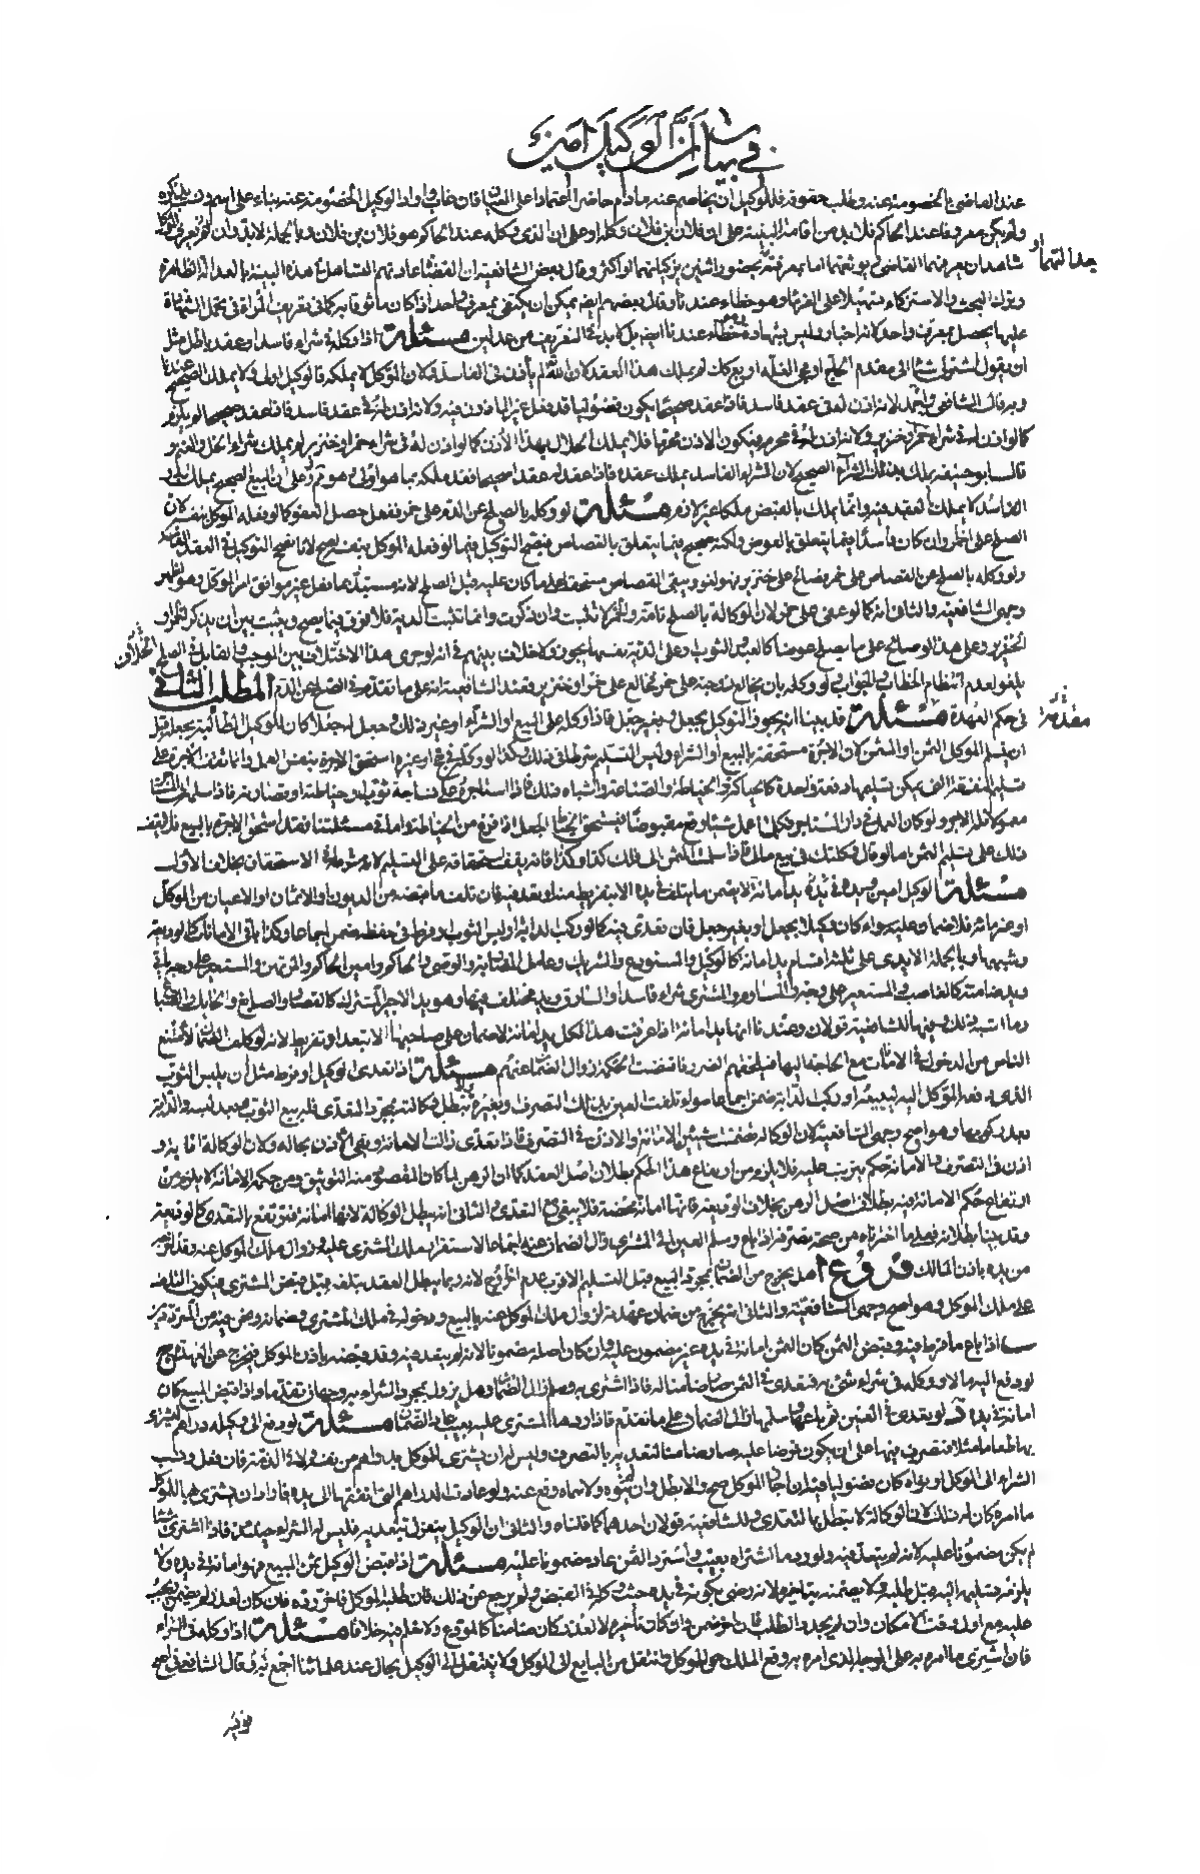 في بيان ان الوكيل امين
عند القاضي بالخصومة عنه وطلب حقوقه فللوكيل ان يخاصم عنه مادام حاضرا اعتمادا على العيان فان غاب واراد الوكيل الخصومة عنه بناء على اسم ونسب يذكره
ولم يكن معروفا عند الحاكم فلابد من اقامة البينة على ان فلان بن فلان وكله او على ان الذي وكله عند الحاكم هو فلان بن فلان وبالجملة لابد وان
شاهدان يعرفهما القاضي ويوثقهما اما بمعرفته بحضور اثنين يزكيانهما او اكثر وقال بعض الشافعية ان القضاة عادتهم التساهل في هذه البينة بالعدالة الظاهرة
وترك البحث والاستزكاء تسهيلا على الغرباء وهو خطاء عندنا وقال بعضهم ايضا يمكن ان يكتفى بمعرف واحد اذا كان موثوقا به كما في تعريف المراة في تحمل الشهادة
عليها يحصل بمعرف واحد لانه اخبار وليس بشهادة وهو خطاء عندنا ايضا بل لابد في التعريف من عدلين مسئلة اذا وكله في شراء فاسد او عقد باطل مثل
ان يقول اشتر لي شيئا الى مقدم الحاج او مجيء الغلة او بع كان لم يملك هذا العقد لان الله لم ياذن في الفاسد ولان الموكل لا يملكه فالوكيل اولى ولا يملك الصحيح عندنا
وبه قال الشافعي واحمد لانه اذن له في عقد فاسد فاذا عقد صحيحا يكون فضوليا قد فعل غير الماذون فيه ولانه اذن له في عقد فاسد فاذا عقد صحيحا لم يلزم
كما لو اذن له في شراء خمر وخنزير ولانه اذن له في محرم فيكون الاذن محرما فلا يملك الحلال بهذا الاذن كما لو اذن له في شراء خمر او خنزير لم يملك شراء الخل والغنم و
قال ابو حنيفة يملك بهذلك الشراء الصحيح لان الشراء الفاسد يملك عقده فاذا عقد له عقدا صحيحا فقد ملكه بما هو اولى وهو
الفاسد لا يملك بالعقد فيه وانما يملك بالقبض ملكا غير لازم مسئلة لو وكله بالصلح عن الدم على خمر ففعل حصل العفو كما لو فعله الموكل بنفسه لان
الصلح على الخمر وان كان فاسدا فيما يتعلق بالعوض ولكنه صحيح فيما يتعلق بالقصاص فيصح التوكيل فيما لو فعله الموكل بنفسه لصح لانا نصحح التوكيل في العقد الفاسد
ولو وكله بالصلح عن القصاص على خمر فصالح على خنزير فهو لغو ويبقى القصاص مستحقا على ما كان عليه قبل الصلح لانه مستبد بما فعل غير موافق امر الموكل وهو اظهر
وجهي الشافعية والثاني انه كما لو عفى على خمر لان الوكالة بالصلح تامة والخمر لا تثبت وان ذكرت وانما تثبت الدية فلا فرق فيما يصح ويثبت بين ان يذكر الخمر او
الخنزير وعلى هذا لو صالح على ما يصلح عوضا كالعبد والثوب وعلى الدية نفسها يجوز ولا خلاف بينهم في انه لو جرى هذا الاختلاف بين الموجب والقابل في الصلح
يلغو لعدم انتظام الخطاب والجواب ولو وكله بان يخالع زوجته على خمر فخالع على خمر او خنزير فعند الشافعية انه على ما تقدم في الصلح عن الدم المطلب الثاني
في حكم العهدة مسئلة قد بينا انه يجوز التوكيل بجعل وبغير جعل فاذا وكله على البيع او الشراء او غير ذلك وجعل له جعلا كان للوكيل المطالبة بجعله قبل
ان يتسلم الموكل الثمن او المثمن لان الاجرة مستحقة بالبيع او الشراء وليس التسليم شرطا في ذلك وكذا لو وكله في حج او غيره استحق الاجرة بنفس العمل وانما تقف الاجرة على
تسليم المنفعة التي يمكن تسليمها دفعة واحدة كالحياكة والخياطة والصناعة واشباه ذلك فاذا استاجره على نساجة ثوب او خياطته او قصارته فاذا سلمه الى المستاجر
معمولا فله الاجر ولو كان العمل في دار المستاجر فكلما عمل شيئا وقع مقبوضا فيستحق الخياط الجعل اذا فرغ من الخياطة واما في مسئلتنا فقد استحق الاجرة بالبيع فلا يقف
ذلك على تسليم الثمن اما لو قال وكلتك في بيع مالي فاذا سلمت الثمن الي فلك كذا وكذا فانه يقف استحقاقه على التسليم لانه شرطه في الاستحقاق بخلاف الاول
مسئلة الوكيل امين ويده يد امانة لا يضمن ما يتلف في يده الا بتفريط منه او تعد فيه فان تلف ما قبضه من الديون او الاثمان او الاعيان من الموكل
او غرمائه فلا ضمان عليه سواء كان وكيلا بجعل او بغير جعل فان تعدى فيه كما لو ركب الدابة او لبس الثوب او فرط في حفظه ضمن اجماعا وكذا باقي الامانات كالوديعة
وشبهها وبالجملة الايدي على ثلثة اقسام يد امانة كالوكيل والمستودع والشريك وعامل المضاربة والوصي والحاكم وامين الحاكم والمرتهن والمستعير على وجه ياتي
ويد ضامنة كالغاصب والمستعير على وجه والسارق والمشتري شراء فاسدا والسارق ويد مختلف فيها وهو يد الاجير المشترك كالقصار والصباغ والحائك والصائغ
وما اشبه ذلك وفيها للشافعية قولان وعندنا انها يد امانة اذا عرفت هذا فكل يد امانة لا ضمان على صاحبها الا بتعد او تفريط لانه لو كلف الضمان لامتنع
الناس من الدخول في الامانات مع الحاجة اليها فيلحقهم الضرر فاقتضت الحكمة زوال الضمان عنهم مسئلة اذا تعدى الوكيل او فرط مثل ان يلبس الثوب
الذي دفعه الموكل اليه ليبيعه او ركب الدابة ضمن اجماعا ولو تلفت العين بذلك التصرف وبغيره ولا تبطل وكالته بمجرد التعدي فله بيع الثوب بعد لبسه والدابة
بعد ركوبها وهو اصح وجهي الشافعية لان الوكالة تضمنت شيئين الامانة والاذن في التصرف فاذا تعدى زالت الامانة وبقي الاذن بحاله ولان الوكالة
اذن في التصرف والامانة حكم يترتب عليه فلا يلزم من ارتفاع هذا الحكم بطلان اصل العقد كما ان الرهن لما كان المقصود منه التوثيق ومن حكمه الامانة لا يلزم من
ارتفاع حكم الامانة فيه بطلان اصل الرهن بخلاف الوديعة فانها امانة محضة فلا يبقى مع التعدي والثاني انه يبطل الوكالة لانها امانة فترتفع بالتعدي كالوديعة
وقد بينا بطلانه فعلى ما اخترناه من صحة تصرفه اذا باع وسلم العين الى المشتري زال الضمان عنه اجماعا لاستقرار ملك المشتري عليه وزوال ملك الموكل عنه وقد اخرجه
من يده باذن المالك فروع اهل يخرج من الضمان بمجرد البيع قبل التسليم الاقرب عدم الخروج لانه ربما يبطل العقد بتلفه قبل قبض المشتري فيكون التلف
على ملك الموكل وهو اصح وجهي الشافعية والثاني انه يخرج من ضمان عهدته لزوال ملك الموكل عنه بالبيع ودخوله في ملك المشتري وضمانه
ب اذا باع ما فرط فيه وقبض الثمن كان الثمن امانة في يده غير مضمون عليه وان كان اصله مضمونا لانه لم يتعد فيه وقد قبضه باذن الموكل فيخرج عن العهدة ج
لو دفع اليه مالا ووكله في شراء شيء به فتعدى في الثمن صار ضامنا له فاذا اشترى به وسلم زال الضمان وهل يزول بمجرد الشراء به وجهان تقدما واذا قبض المبيع كان
امانة في يده د لو تعدى في العين ثم باعها وسلمها زال الضمان على ما تقدم فاذا ردها المشتري عليه بعيب عاد الضمان مسئلة لو دفع الى وكيله دراهم ليشتري
بها طعاما مثلا فتصرف فيها على ان يكون قرضا عليه صار ضامنا لتعديه بالتصرف وليس له ان يشتري للموكل بدراهم من نفسه ولا في الذمة فان فعل ونسب
الشراء الى الموكل او نواه كان فضوليا فيه ان اجاز الموكل صح والا بطل وان لم ينوه ولا سماه وقع عنه ولو عادت الدراهم التي انفقها الى يده فاراد ان يشتري بها للموكل
ما امره كان له ذلك لان الوكالة لا تبطل بالتعدي وللشافعية قولان احدهما كما قلناه والثاني ان الوكيل ينعزل بتعديه فليس له الشراء حينئذ فاذا اشترى شيئا
لم يكن مضمونا عليه لانه لم يتعد فيه ولو رد ما اشتراه بعيب واسترد الثمن عاد مضمونا عليه مسئلة اذا قبض الوكيل ثمن المبيع فهو امانة في يده ولا
يلزمه تسليمه اليه قبل طلبه ولا يضمنه بتاخيره لانه رضي بكونه في يده حيث وكله في القبض ولم يرجع عن ذلك فان طلبه الموكل فاخر رده فان كان لعذر لم يضمن ويجب
عليه مع اول وقت الامكان وان لم يجدد الطلب فان اخر ضمن وان كان تاخيره لا لعذر كان ضامنا كالمودع ولا نعلم فيه خلافا مسئلة اذا وكله في الشراء
فان اشترى ما امره به على الوجه الذي امره به وقع الملك للموكل وانتقل من البايع الى الموكل ولا ينتقل الى الوكيل بحال عند علمائنا اجمع وبه قال الشافعي في اصح